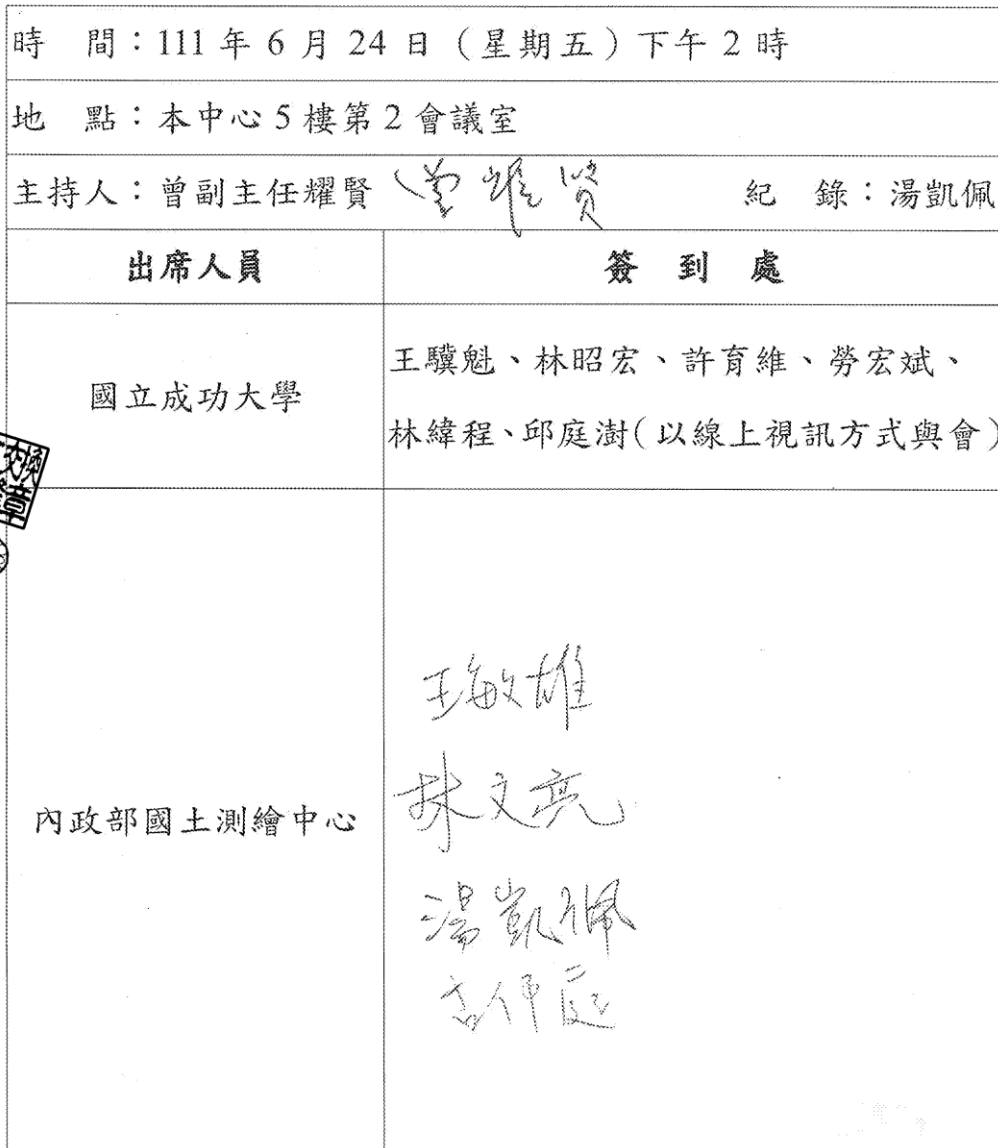 時　間：111 年 6 月 24 日（星期五）下午 2 時
地　點：本中心 5 樓第 2 會議室
主持人：曾副主任耀賢 曾耀賢 紀　錄：湯凱佩
出席人員 簽 到 處
國立成功大學
王驥魁、林昭宏、許育維、勞宏斌、
林緯程、邱庭澍(以線上視訊方式與會)
交換
章
內政部國土測繪中心
王敏雄
林文亮
湯凱佩